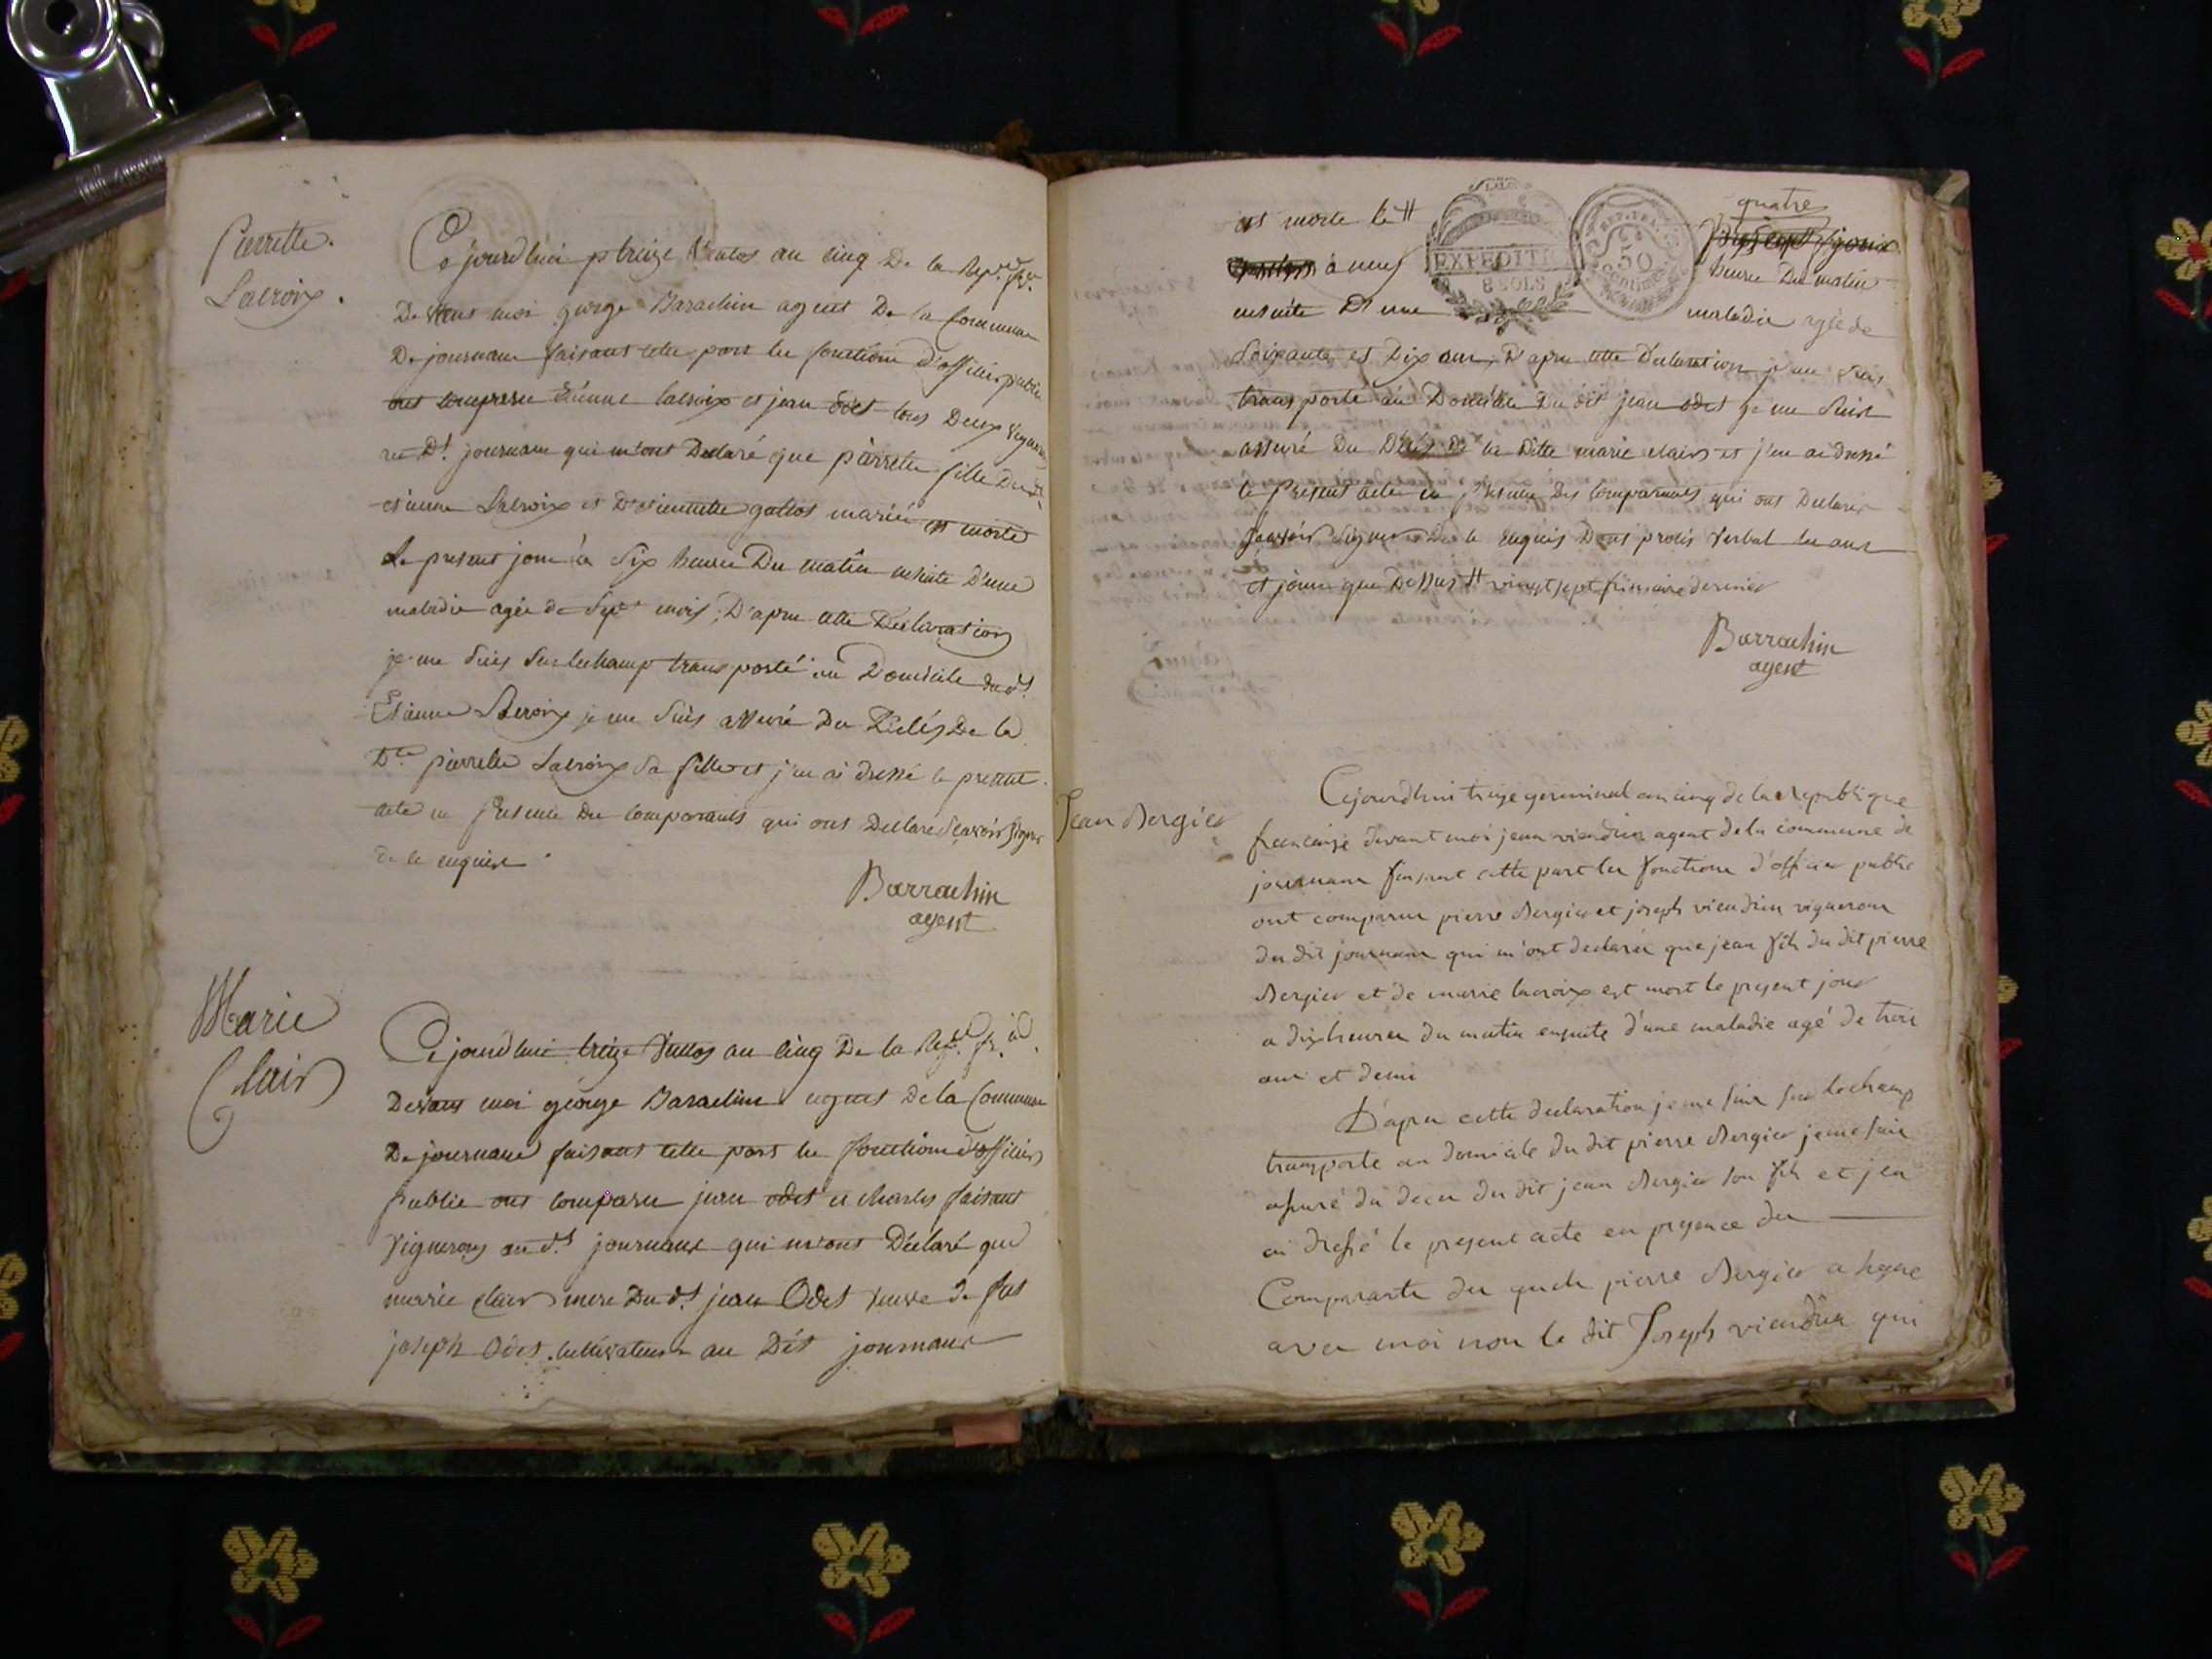 Pierrette
Lacroix.
Cejourd'hui treize Ventos an cinq De la Rep.
Devant moi george Barachin agent De la Commune
De journaux faisant cette part les fonctions d'officier public
ont comparu étienne lacroix et jean odet tous Deux vignerons
au D.t journaux qui m'ont Declaré que pierrette fille Du d.t
etienne Lacroix et D'etiennette gallos mariés est morte
Le present jour à six heures Du matin ensuite D'une
maladie agée de Sept mois, D'apres cette Declaration
je me suis Sur lechamp transporté au Domicile du d.t
Etienne Lacroix je me suis assuré Du Décés De la
D.te pierrette Lacroix sa fille et j'en ai dressé le present
acte en presence Des comparants qui ont Declaré Scavoir signer
De ce enquis
Barrachin
agent
Marie
Clair
Cejourd'hui treize Ventos an cinq De la Rep. fr.
Devant moi george Barachin agent De la Commune
De journaux faisant cette part les fonctions d'officier
public ont comparu jean odet et charles faisant
Vignerons au d.t journaux qui m'ont Déclaré que
marie clair mere Du d.t jean Odet veuve de fut
joseph Odet cultivateur au Dit journaux
est morte le #
EXPEDITI
8 SOLS
50
centimes
quatre
à neuf
heures Du matin
ensuite D'une maladie agée de
Soixante et Dix ans, D'apres cette Declaration je me suis
transporté au Domicile Du dit jean odet je me suis
assuré Du Décés de la Ditte marie clair et j'en ai dressé
le present acte en presence Des comparants qui ont Declaré
scavoir signer De ce enquis Dont procés verbal les ans
et jour que Dessus # vingt sept frimaire dernier
Barrachin
agent
Jean Bergier
Cejourdhui treize germinal an cinq de la republique
francaise devant moi jean viendrin agent de la commune de
journaux faisant cette part les fonctions d'officier public
ont comparu pierre Bergier et joseph viendrin vignerons
du dit journaux qui m'ont declarés que jean fils du dit pierre
Bergier et de marie lacroix est mort le present jour
a dix heures du matin ensuite d'une maladie agé de trois
ans et demi
D'apres cette declaration je me suis sur le champ
transporte au domicile du dit pierre Bergier je me suis
assuré du deces du dit jean Bergier son fils et j'en
ai dressé le present acte en presence des
Comparants des quels pierre Bergier a signe
avec moi non le dit Joseph viendrin qui